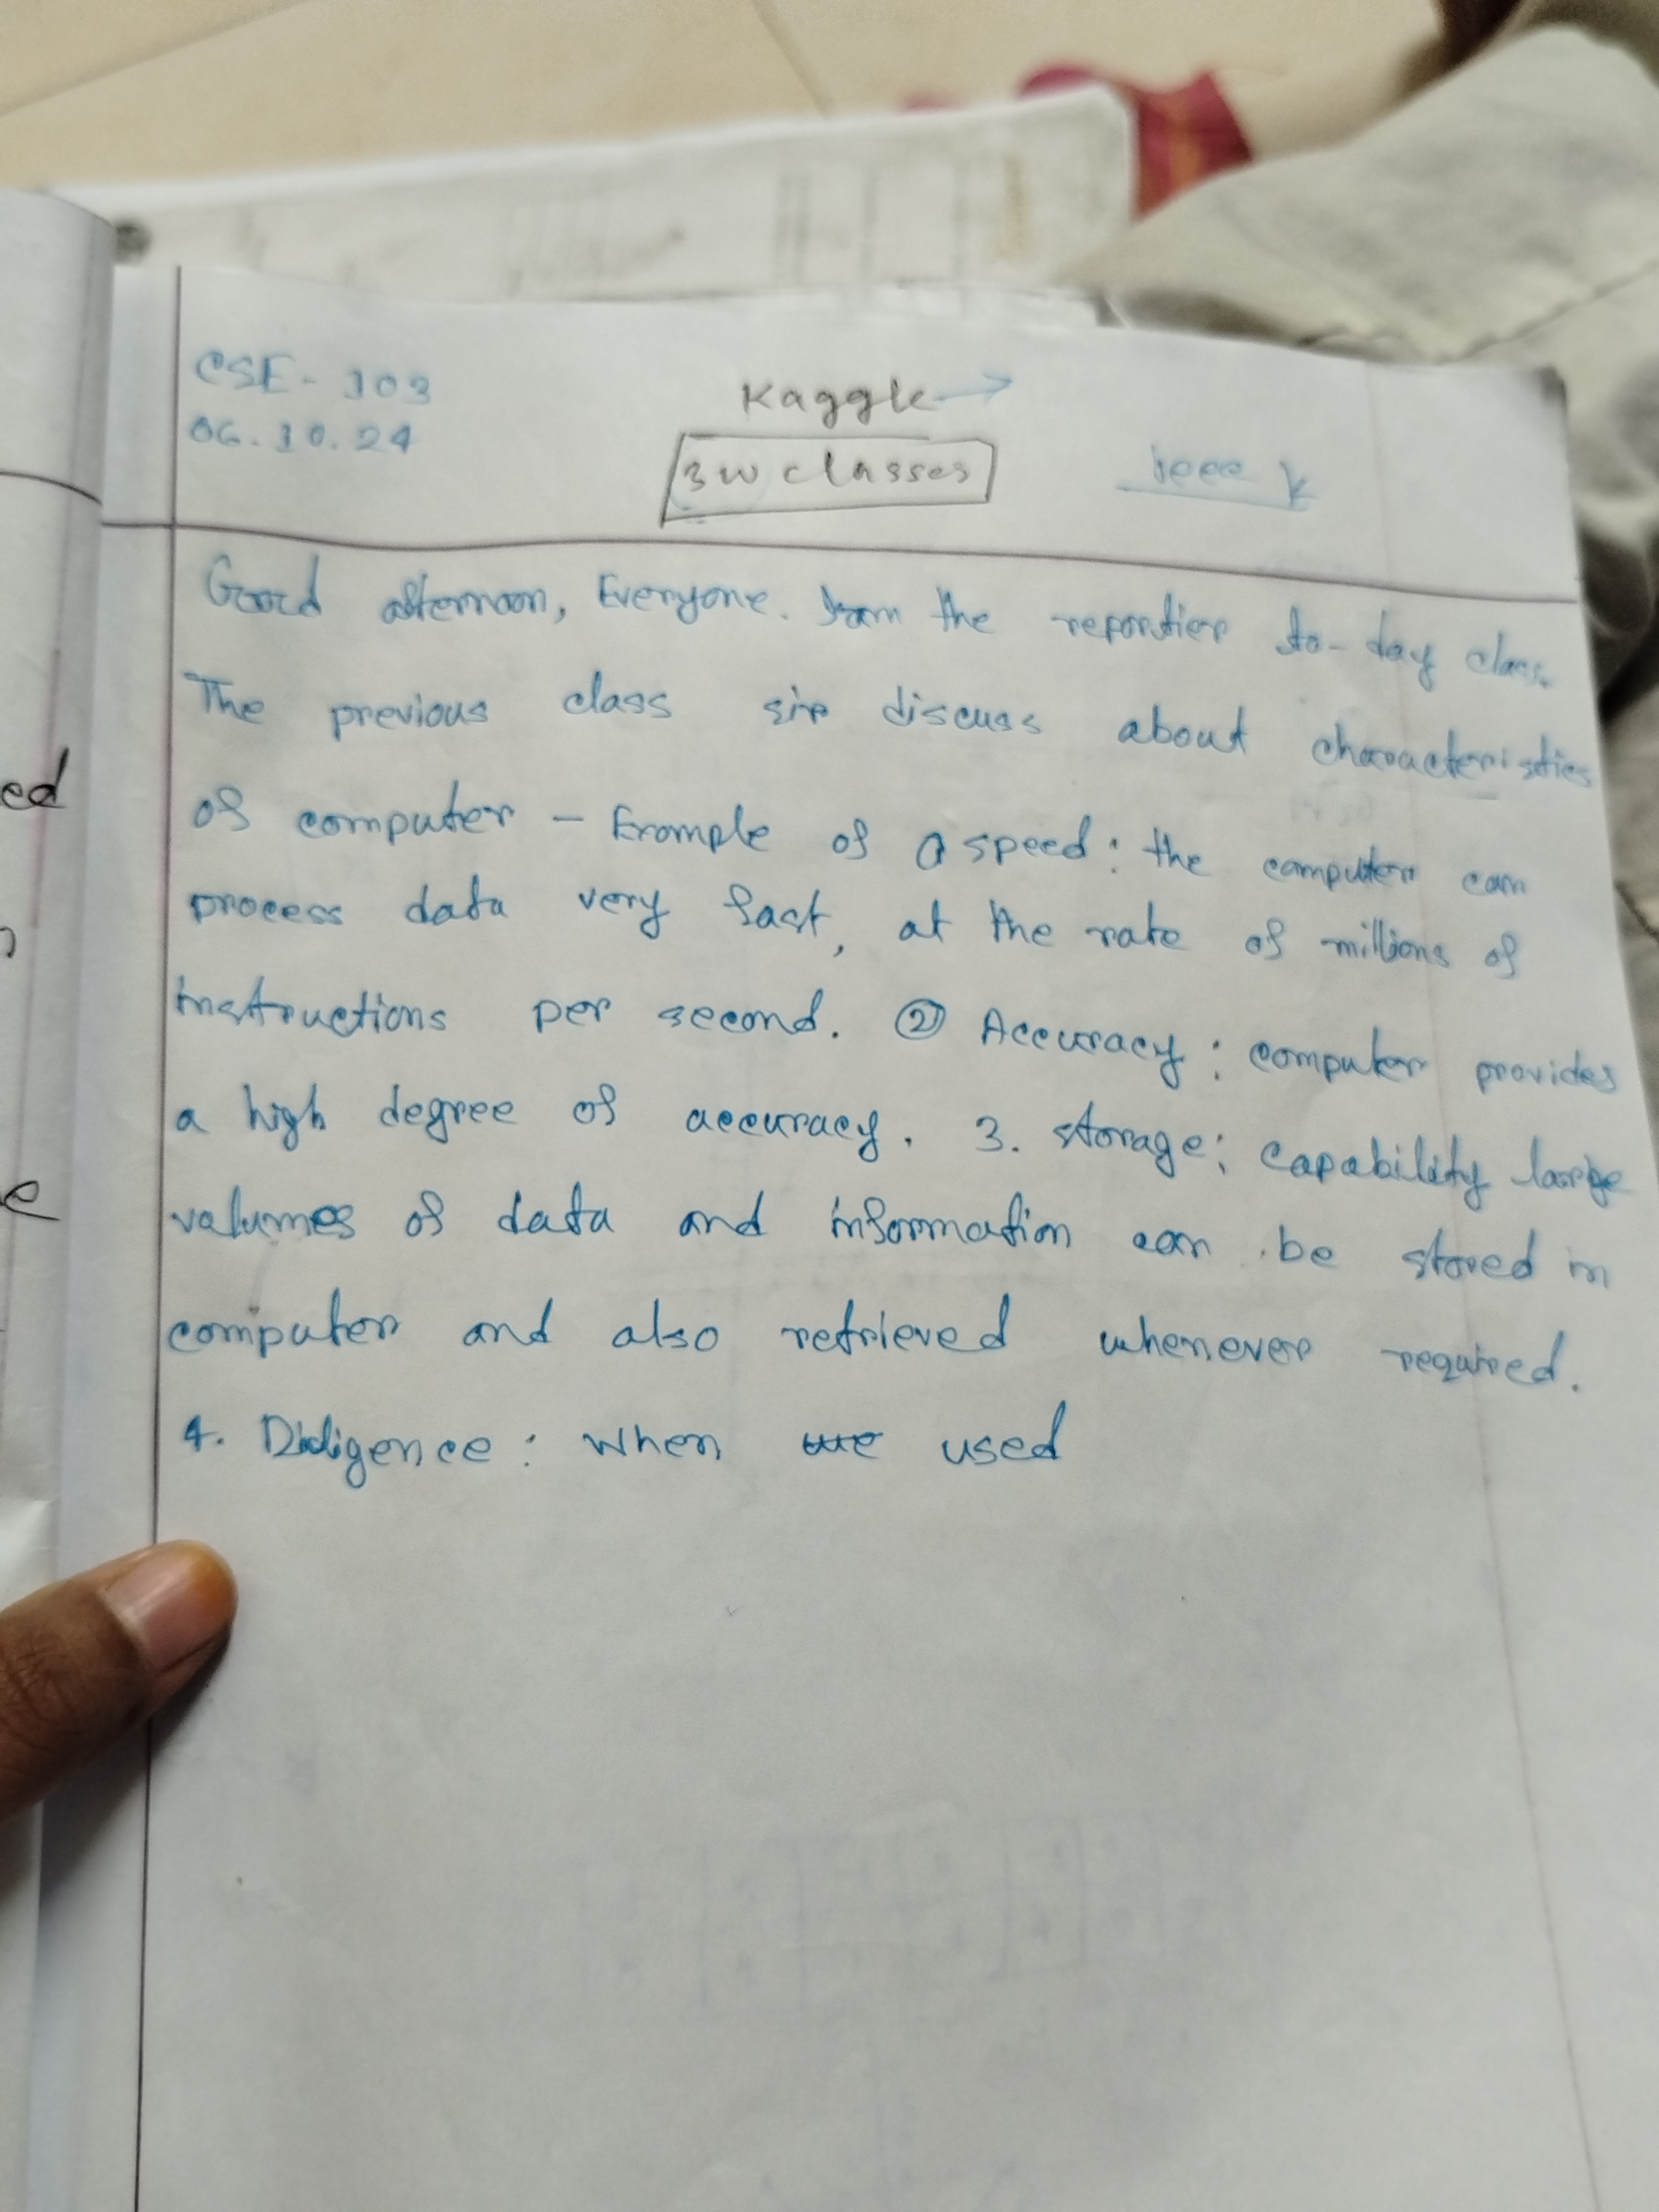 CSE-103
06.10.24
Kaggle →
3w classes
Good afternoon, Everyone. I am the reportier to-day class.
The previous class sir discuss about characteristics
of computer - Example of a speed: the computer can
process data very fast, at the rate of millions of
instructions per second. ② Accuracy: computer provides
a high degree of accuracy. 3. storage: capability large
valumes of data and information can be stored in
computer and also retrieved whenever required.
4. Diligence: When used
ed
e